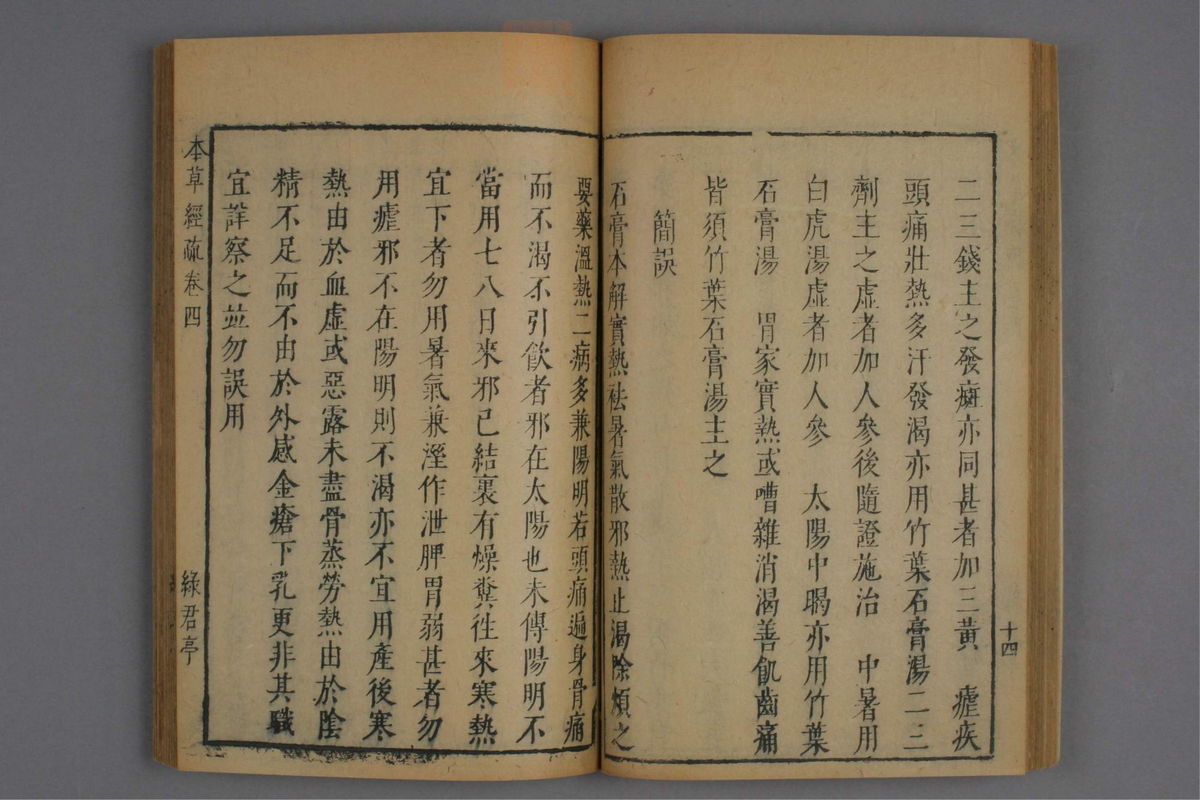 二三錢主之發斑亦同甚者加三黃　瘧疾
頭痛壯熱多汗發渴亦用竹葉石膏湯二三
劑主之虛者加人參後隨證施治　中暑用
白虎湯虛者加人參　太陽中暍亦用竹葉
石膏湯　胃家實熱或嘈雜消渴善飢齒痛
皆須竹葉石膏湯主之
簡誤
石膏本解實熱祛暑氣散邪熱止渴除煩之
十四
要藥溫熱二病多兼陽明若頭痛遍身骨痛
而不渴不引飲者邪在太陽也未傳陽明不
當用七八日來邪已結裏有燥糞往來寒熱
宜下者勿用暑氣兼溼作泄脾胃弱甚者勿
用瘧邪不在陽明則不渴亦不宜用產後寒
熱由於血虛或惡露未盡骨蒸勞熱由於陰
精不足而不由於外感金瘡下乳更非其職
宜詳察之並勿誤用
本草經疏 卷四
綠君亭